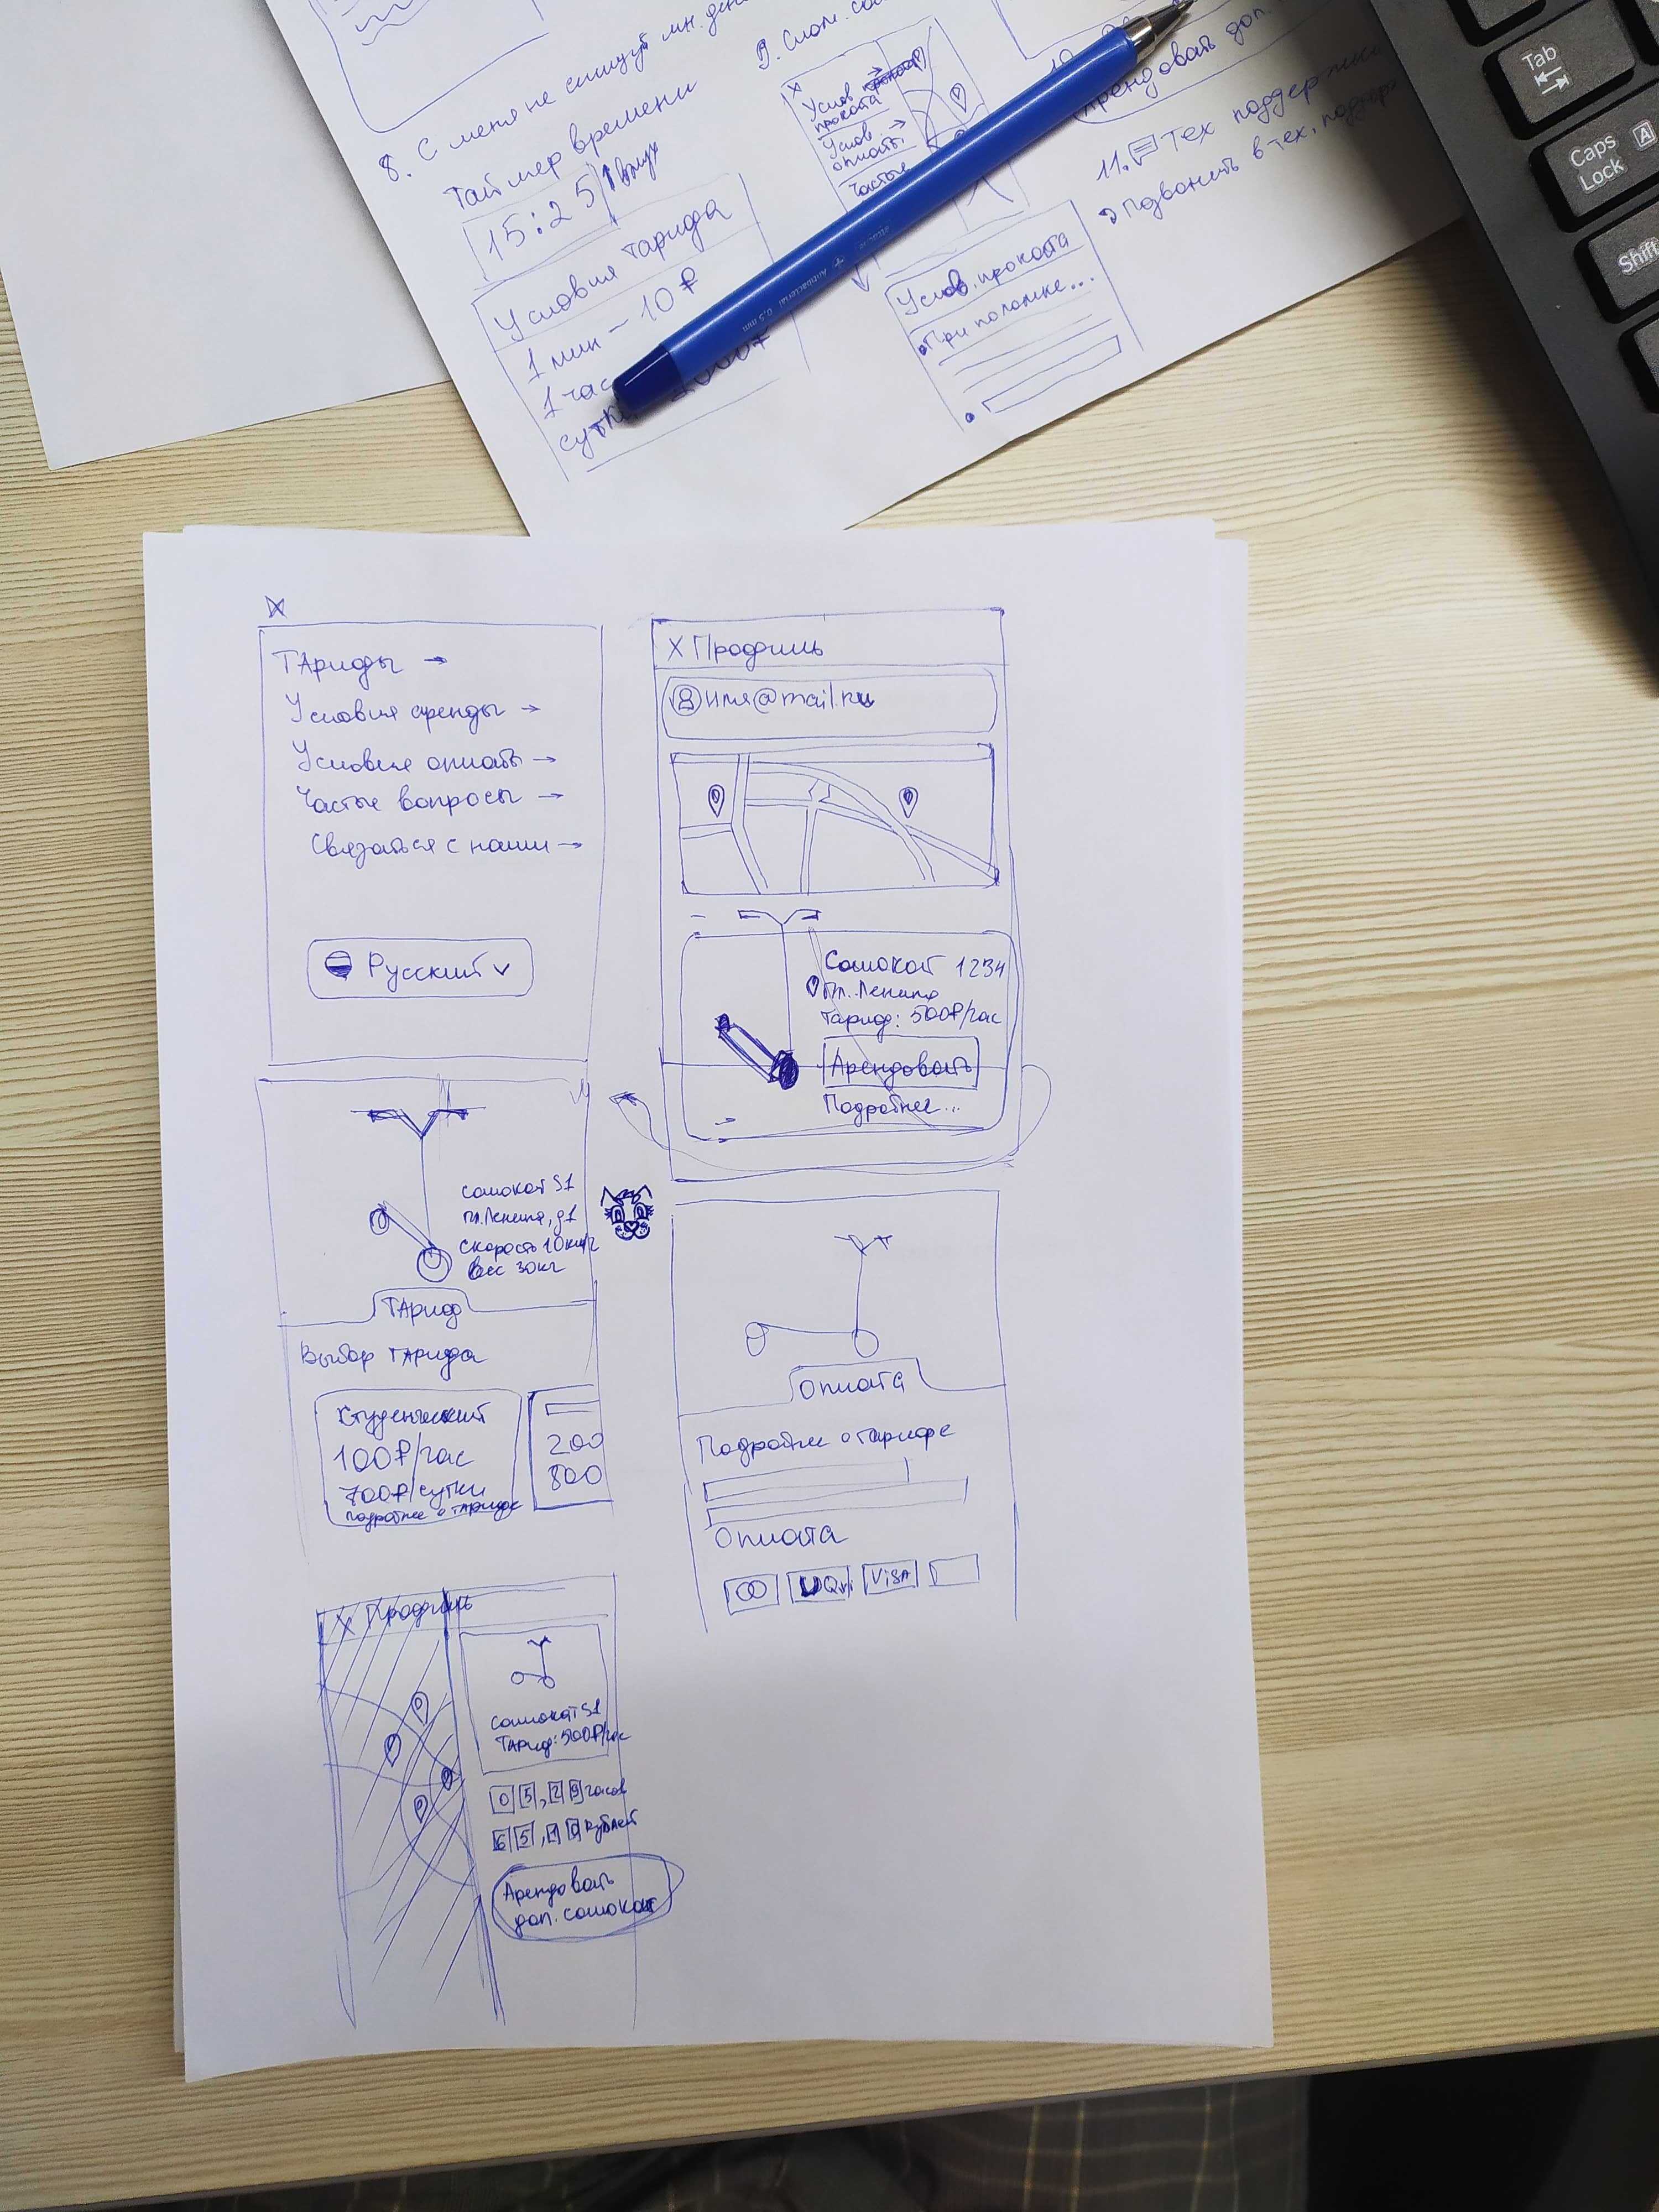 8. С меня не спишут мн. ден
Таймер времени
15:25
Условия тарифа
1 мин – 10₽
1 час
сутки
9. Слом. са
X
Услов
проката
Услов →
оплаты
Частые
Услов. проката
При поломке...
арендовать доп.
11. Тех поддержка
Позвонить в тех. поддер
Tab
Caps
Lock
A
Shift
Тарифы →
Условия аренды →
Условия оплаты →
Частые вопросы →
Связаться с нами →
Русский
X Профиль
имя@mail.ru
Самокат 1234
пл. Ленина
Тариф: 500₽/час
Арендовать
Подробнее...
Самокат S1
пл. Ленина, д1
Скорость 10км/ч
Вес 30кг
Тариф
Выбор тарифа
Студенческий
100₽/час
700₽/сутки
подробнее о тарифе
200
800
Оплата
Подробнее о тарифе
Оплата
Qiwi
VISA
X Профиль
Самокат S1
Тариф: 500₽/час
05,29 часов
65,10 рублей
Арендовать
доп. самокат